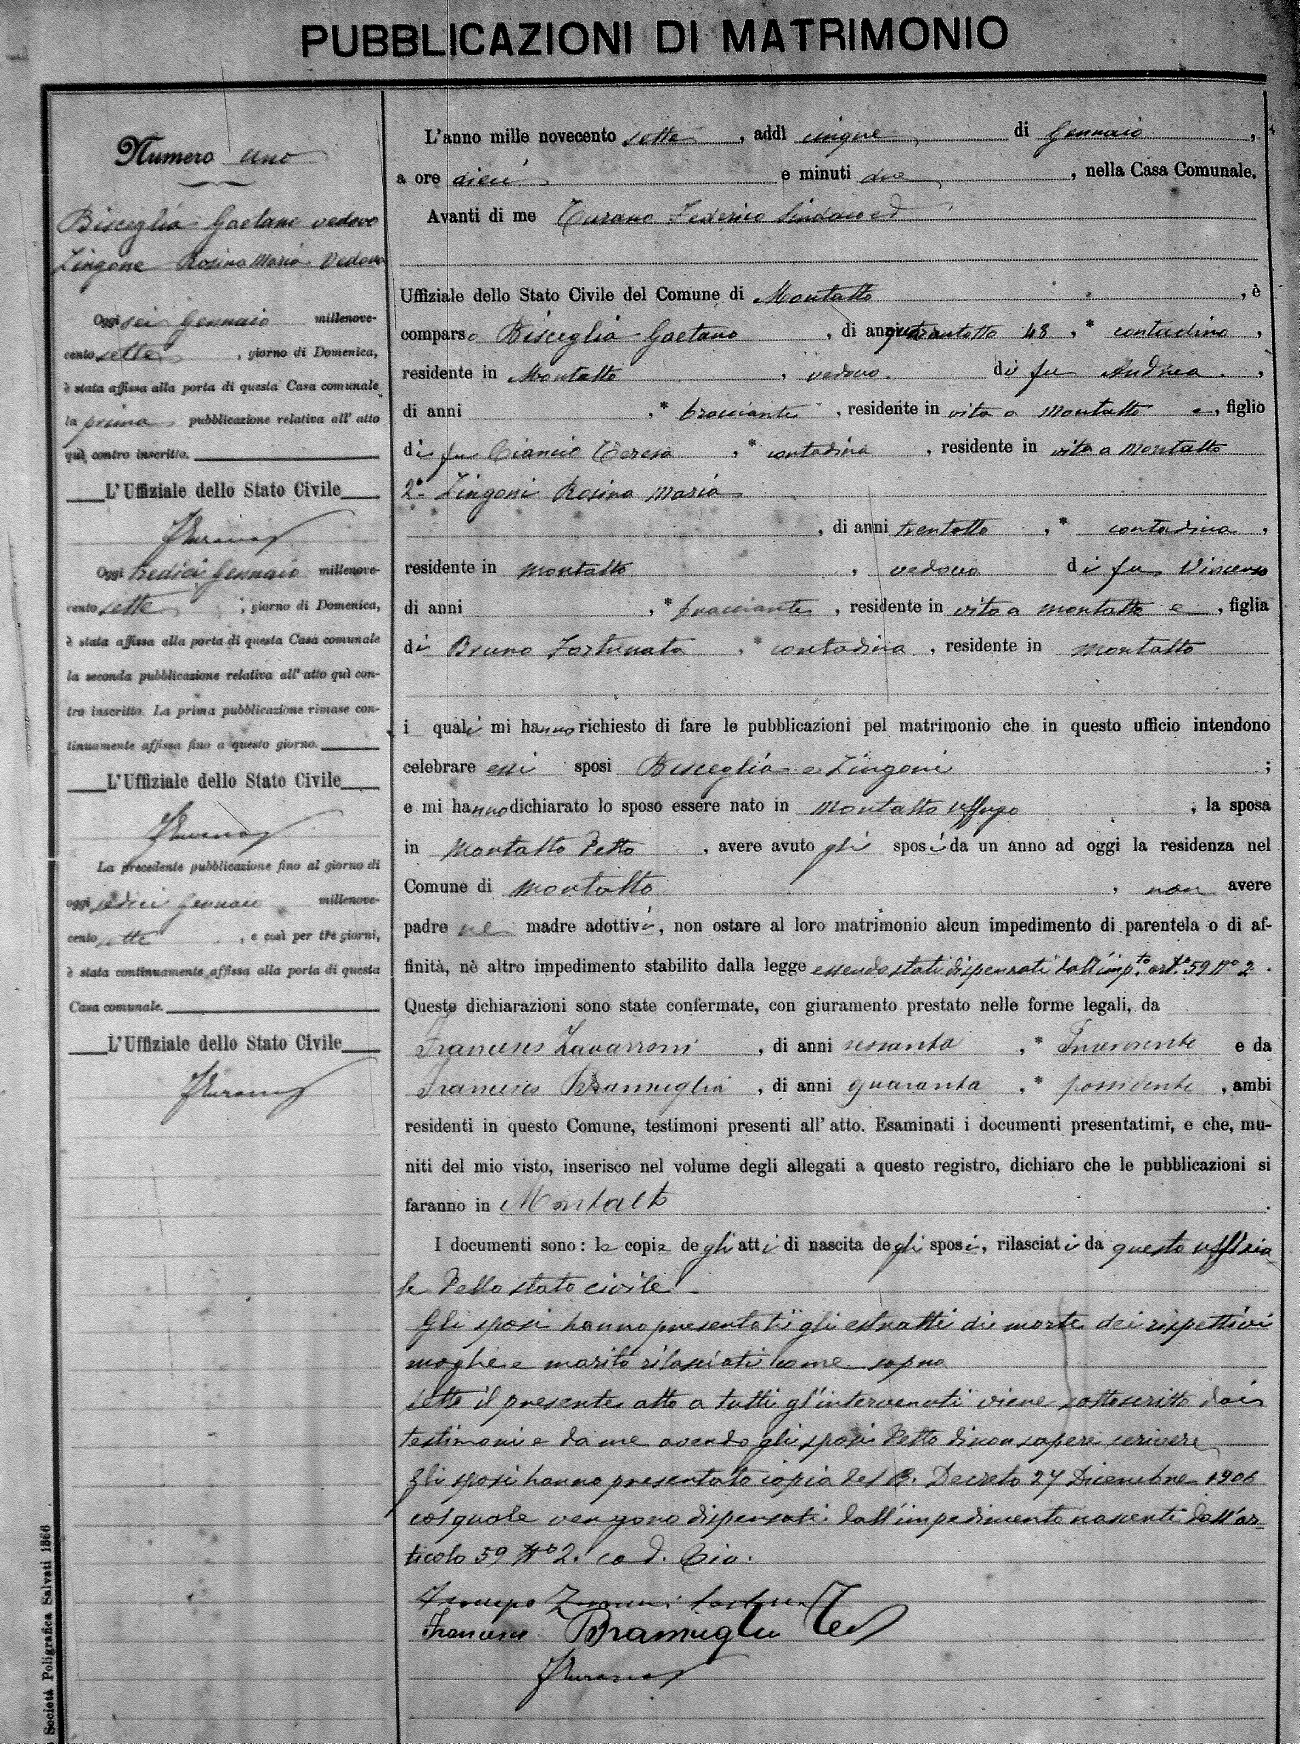 PUBBLICAZIONI DI MATRIMONIO
Numero uno
Bisceglia Gaetano vedovo
Zingone Rosina Maria Vedova
Oggi sei Gennaio millenove-
cento sette, giorno di Domenica,
è stata affissa alla porta di questa Casa comunale
la prima pubblicazione relativa all'atto
quì contro inscritto.
L'Uffiziale dello Stato Civile
Oggi tredici Gennaio millenove-
cento sette, giorno di Domenica,
è stata affissa alla porta di questa Casa comunale
la seconda pubblicazione relativa all'atto quì con-
tro inscritto. La prima pubblicazione rimase con-
tinuamente affissa fino a questo giorno.
L'Uffiziale dello Stato Civile
La precedente pubblicazione fino al giorno di
oggi sedici Gennaio millenove-
cento sette, e così per tre giorni,
è stata continuamente affissa alla porta di questa
Casa comunale.
L'Uffiziale dello Stato Civile
Società Poligrafica Salvati 1866
L'anno mille novecento sette, addì cinque di Gennaio,
a ore dieci e minuti due, nella Casa Comunale.
Avanti di me Turano Federico Sindaco ed
Uffiziale dello Stato Civile del Comune di Montalto, è
comparso Bisceglia Gaetano, di anni quarantotto 48, * contadino,
residente in Montalto, vedovo di fu Andrea,
di anni , * bracciante, residente in vita a Montalto e, figlio
di fu Ciancio Teresa, * contadina, residente in vita a Montalto
2° Zingoni Rosina Maria
, di anni trentotto, * contadina,
residente in Montalto, vedova di fu Vincenzo
di anni , * bracciante, residente in vita a Montalto e, figlia
di Bruno Fortunata, * contadina, residente in Montalto
i quali mi hanno richiesto di fare le pubblicazioni pel matrimonio che in questo ufficio intendono
celebrare essi sposi Bisceglia e Zingoni ;
e mi hanno dichiarato lo sposo essere nato in Montalto Uffugo, la sposa
in Montalto Detto, avere avuto gli sposi da un anno ad oggi la residenza nel
Comune di Montalto, non avere
padre nè madre adottivi, non ostare al loro matrimonio alcun impedimento di parentela o di af-
finità, nè altro impedimento stabilito dalla legge essendo stati dispensati dall'imp.to art.° 59 N° 2.
Queste dichiarazioni sono state confermate, con giuramento prestato nelle forme legali, da
Francesco Zavarroni, di anni sessanta, * Inserviente e da
Francesco Bramuglia, di anni quaranta, * possidente, ambi
residenti in questo Comune, testimoni presenti all'atto. Esaminati i documenti presentatimi, e che, mu-
niti del mio visto, inserisco nel volume degli allegati a questo registro, dichiaro che le pubblicazioni si
faranno in Montalto.
I documenti sono: le copie degli atti di nascita degli sposi, rilasciati da questo uffizia
le Dello stato civile
Gli sposi hanno presentati gli estratti di morte dei rispettivi
moglie e marito rilasciati come sopra
letto il presente atto a tutti gl'intervenuti viene sottoscritto dai
testimoni e da me avendo gli sposi Detto di non sapere scrivere
Gli sposi hanno presentato copia del R. Decreto 27 Dicembre 1906
col quale vengono dispensati dall'impedimento nascenti dall'ar-
ticolo 59 N° 2. cod. Civ.
Francesco Bramuglia Tes